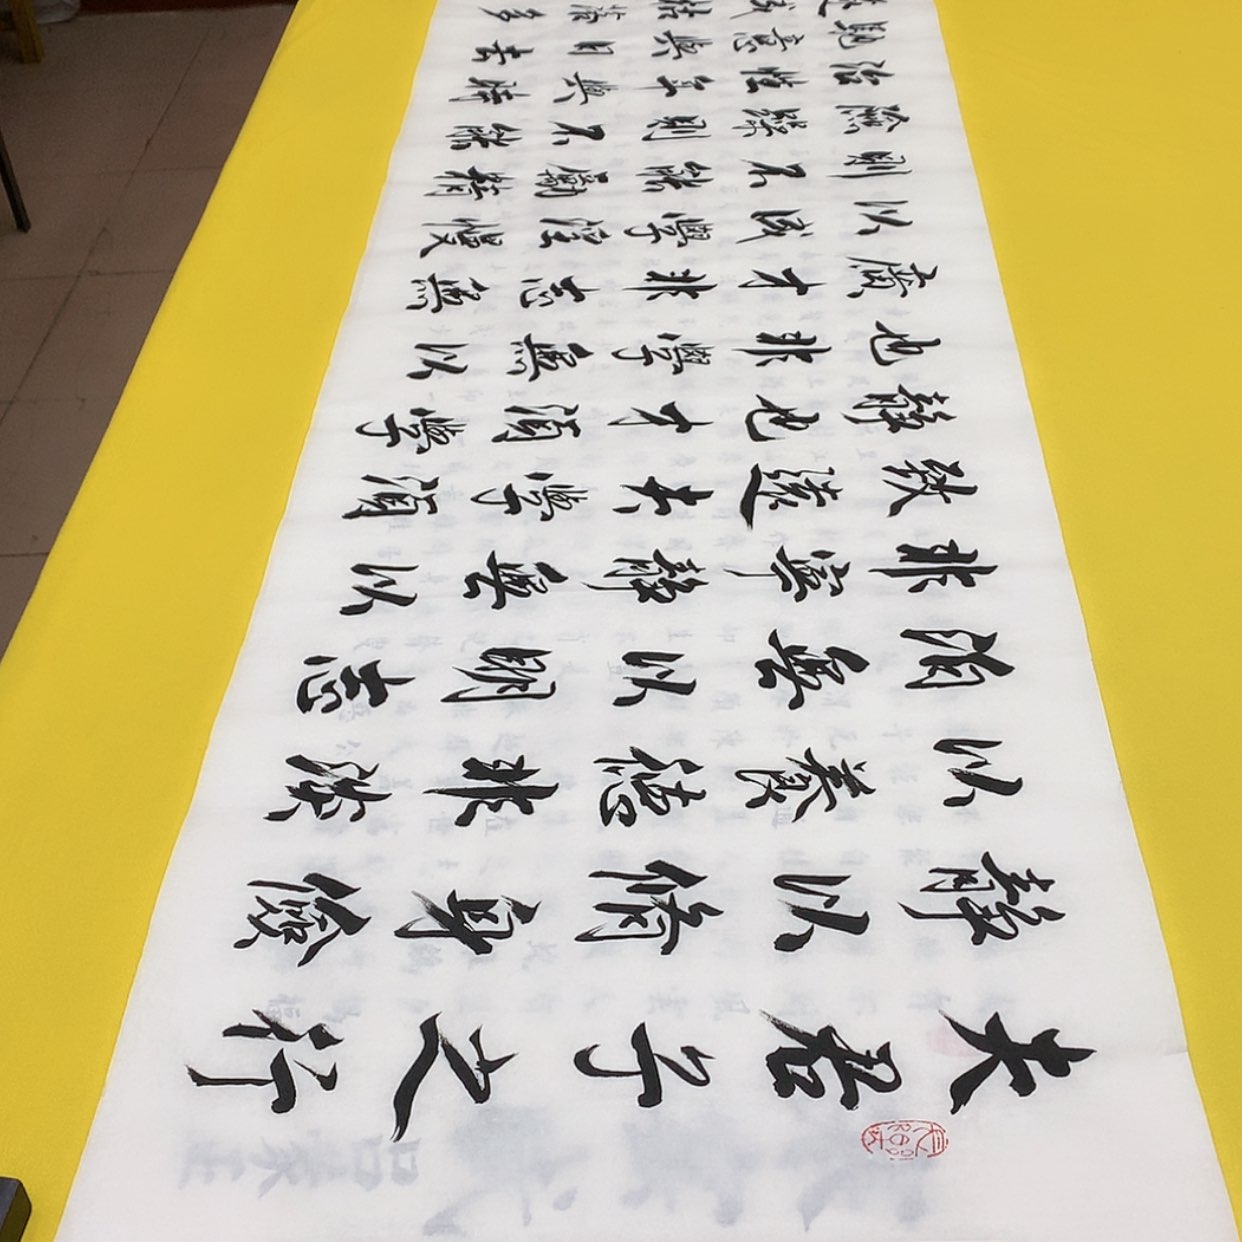 夫君子之行
靜以脩身儉
以養德非淡
泊無以明志
非寧靜無以
致遠夫學須
靜也才須學
也非學無以
廣才非志無
以成學淫慢
則不能勵精
險躁則不能
治性年與時
馳意與日去
遂成枯落多